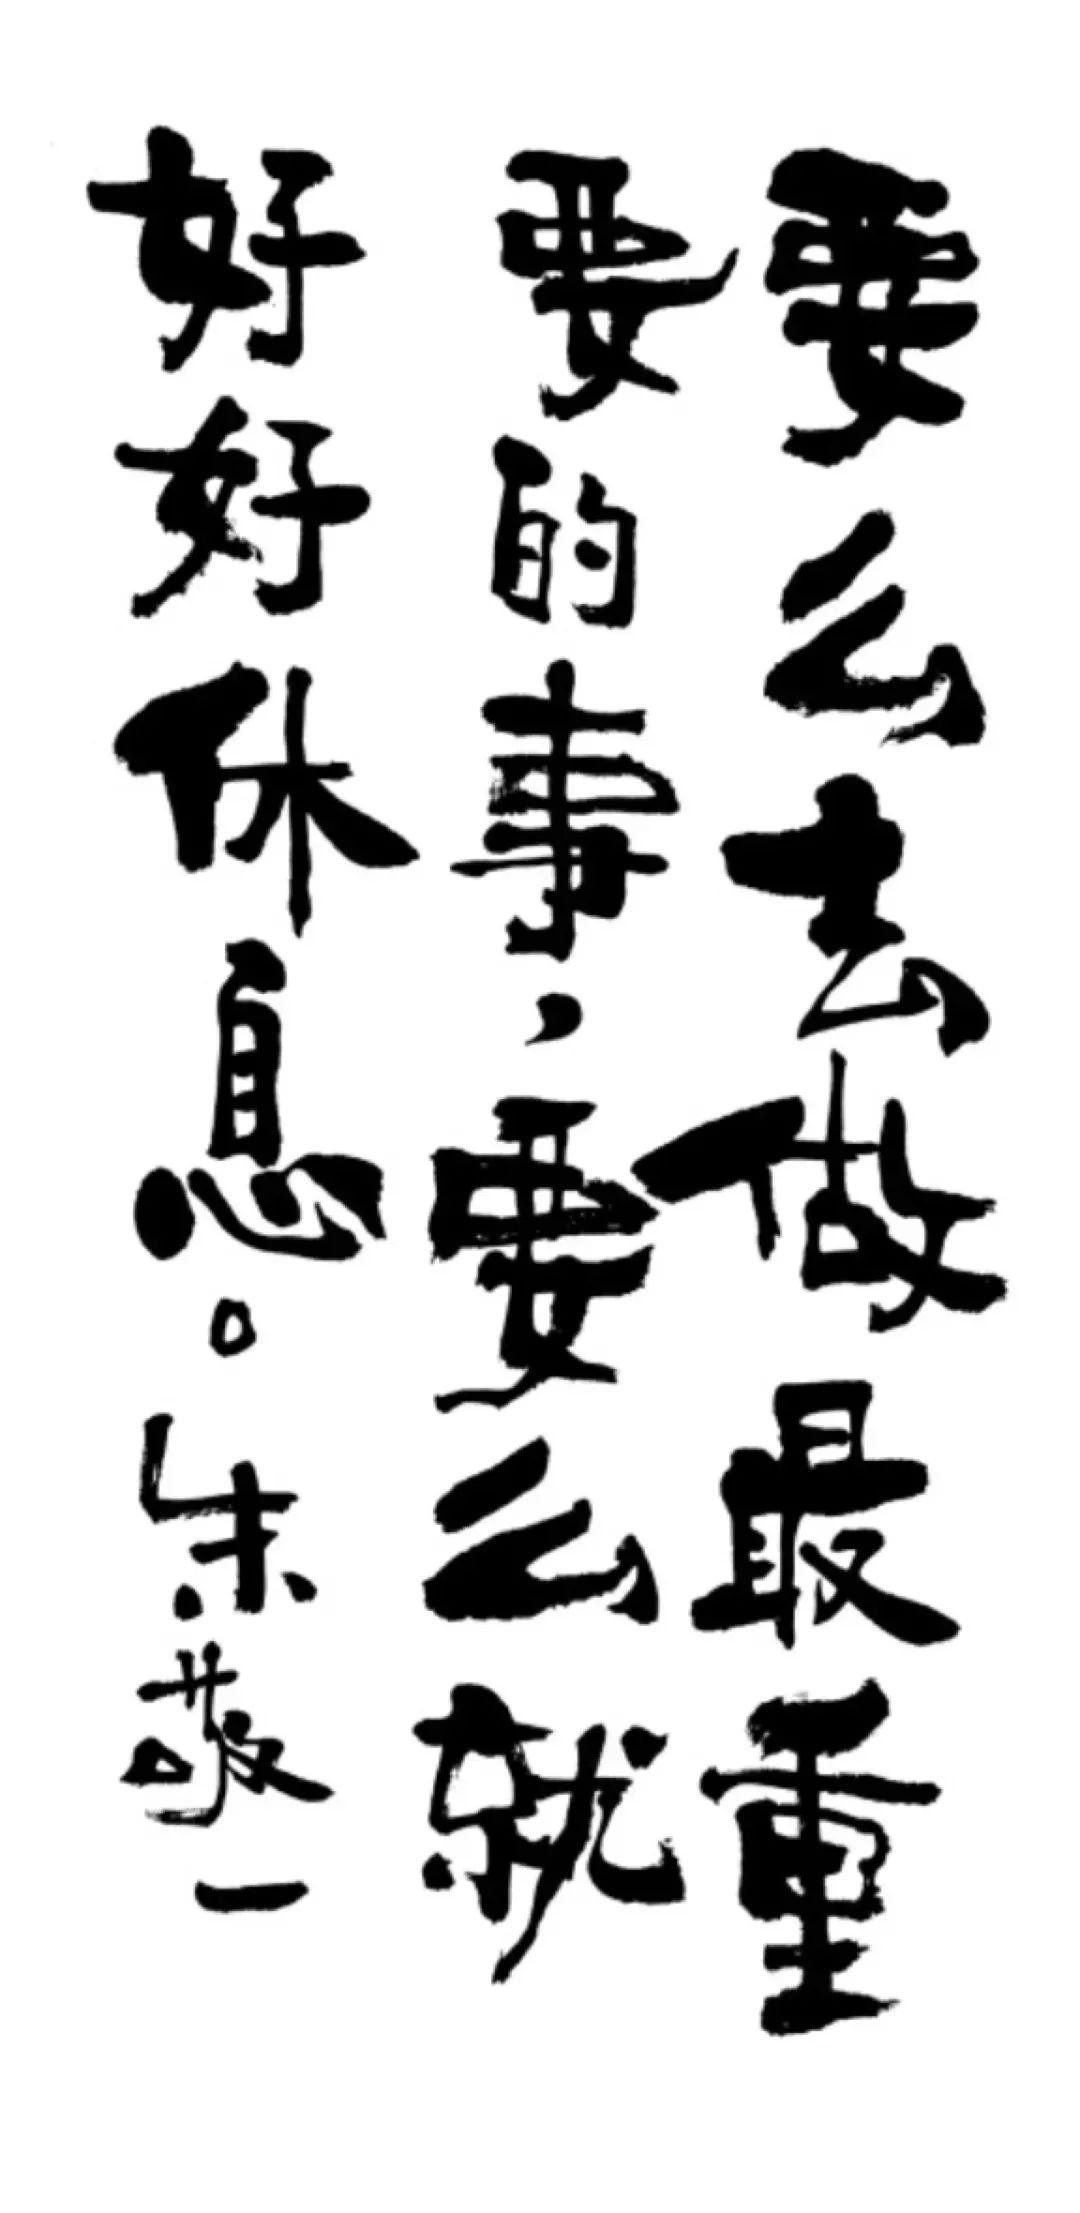 要么去做最重
要的事，要么就
好好休息。朱敬一